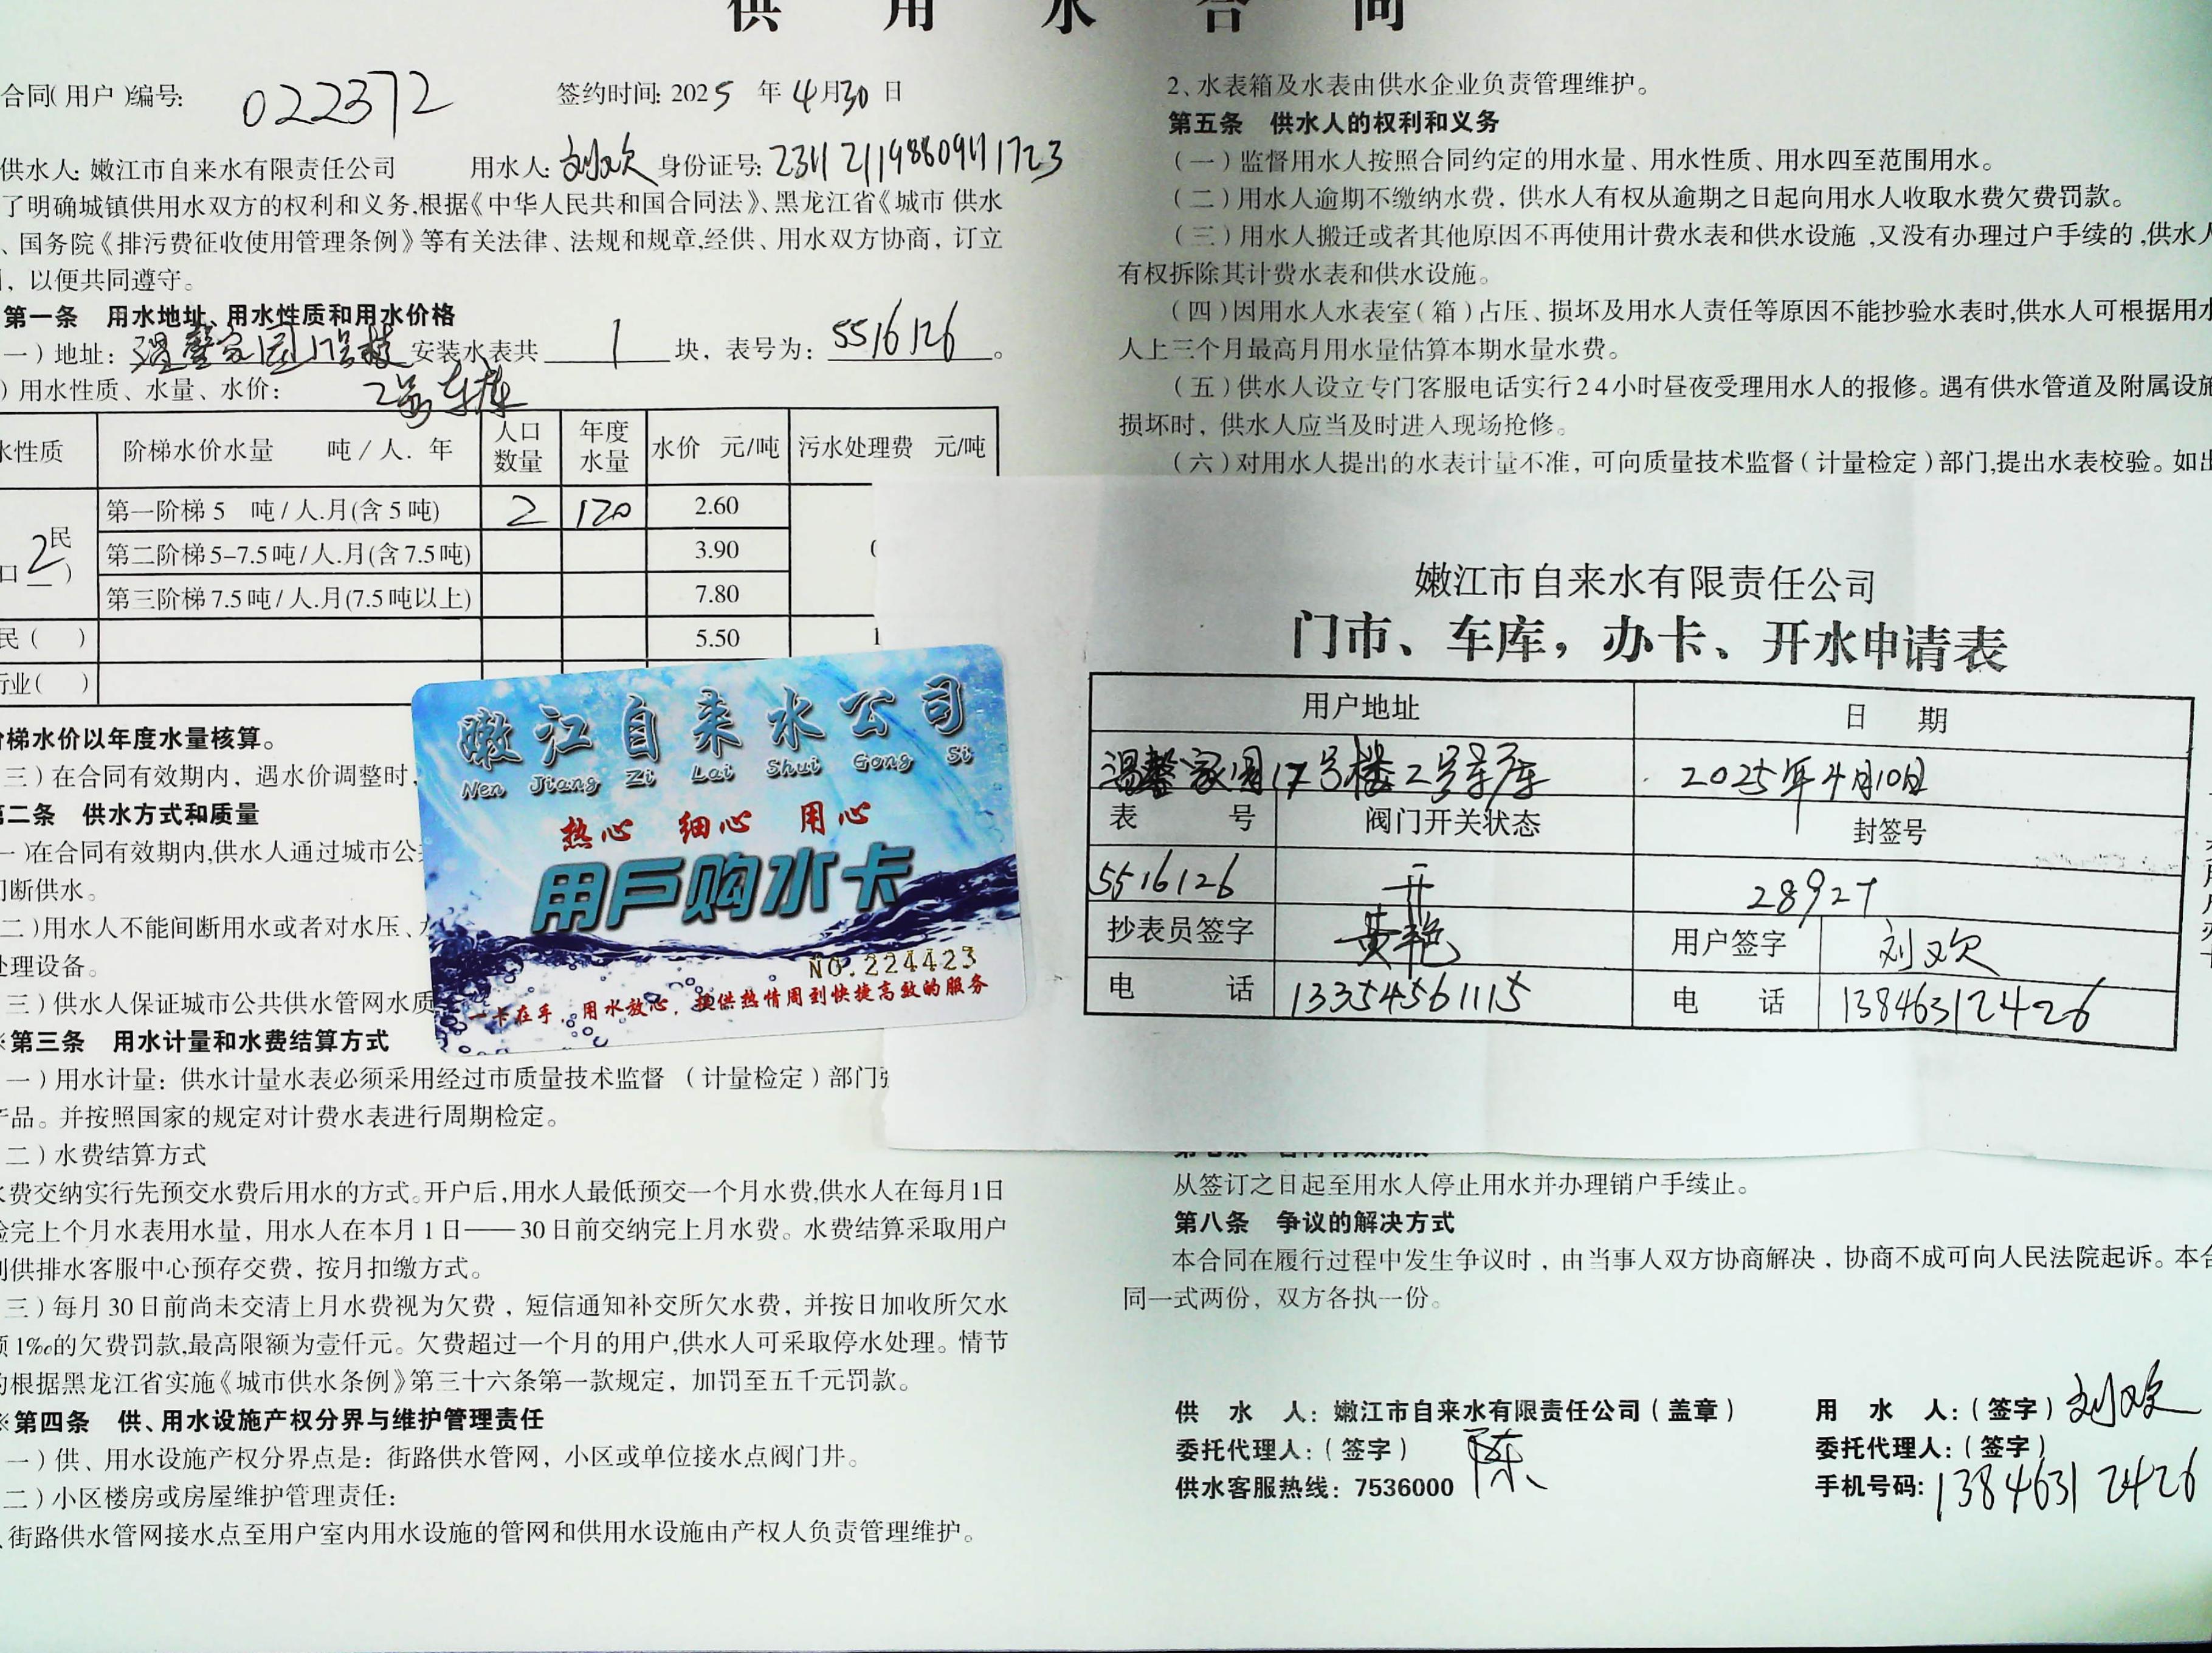 供用水合同
合同(用户)编号: 022372 签约时间: 2025年4月30日
供水人: 嫩江市自来水有限责任公司 用水人: 刘欢 身份证号:
了明确城镇供用水双方的权利和义务,根据《中华人民共和国合同法》、黑龙江省《城市供水
、国务院《排污费征收使用管理条例》等有关法律、法规和规章,经供、用水双方协商,订立
,以便共同遵守。
第一条 用水地址、用水性质和用水价格
一)地址: 温馨家园17号楼 安装水表共 1 块,表号为: 5516126。
2号车库
)用水性质、水量、水价:
水性质 阶梯水价水量 吨/人.年 人口数量 年度水量 水价 元/吨 污水处理费 元/吨
民
口2)
第一阶梯5 吨/人.月(含5吨) 2 120 2.60
第二阶梯5-7.5吨/人.月(含7.5吨) 3.90
第三阶梯7.5吨/人.月(7.5吨以上) 7.80
民( ) 5.50 1
行业( )
阶梯水价以年度水量核算。
三)在合同有效期内,遇水价调整时,
第二条 供水方式和质量
一)在合同有效期内,供水人通过城市公
间断供水。
二)用水人不能间断用水或者对水压、
处理设备。
三)供水人保证城市公共供水管网水质
※第三条 用水计量和水费结算方式
一)用水计量:供水计量水表必须采用经过市质量技术监督(计量检定)部门
产品。并按照国家的规定对计费水表进行周期检定。
二)水费结算方式
水费交纳实行先预交水费后用水的方式。开户后,用水人最低预交一个月水费,供水人在每月1日
检完上个月水表用水量,用水人在本月1日——30日前交纳完上月水费。水费结算采取用户
到供排水客服中心预存交费,按月扣缴方式。
三)每月30日前尚未交清上月水费视为欠费,短信通知补交所欠水费,并按日加收所欠水
额1‰的欠费罚款,最高限额为壹仟元。欠费超过一个月的用户,供水人可采取停水处理。情节
的根据黑龙江省实施《城市供水条例》第三十六条第一款规定,加罚至五千元罚款。
※第四条 供、用水设施产权分界与维护管理责任
一)供、用水设施产权分界点是:街路供水管网,小区或单位接水点阀门井。
二)小区楼房或房屋维护管理责任:
、街路供水管网接水点至用户室内用水设施的管网和供用水设施由产权人负责管理维护。
2、水表箱及水表由供水企业负责管理维护。
第五条 供水人的权利和义务
(一)监督用水人按照合同约定的用水量、用水性质、用水四至范围用水。
(二)用水人逾期不缴纳水费,供水人有权从逾期之日起向用水人收取水费欠费罚款。
(三)用水人搬迁或者其他原因不再使用计费水表和供水设施,又没有办理过户手续的,供水人
有权拆除其计费水表和供水设施。
(四)因用水人水表室(箱)占压、损坏及用水人责任等原因不能抄验水表时,供水人可根据用水
人上三个月最高月用水量估算本期水量水费。
(五)供水人设立专门客服电话实行24小时昼夜受理用水人的报修。遇有供水管道及附属设施
损坏时,供水人应当及时进入现场抢修。
(六)对用水人提出的水表计量不准,可向质量技术监督(计量检定)部门,提出水表校验。如出
嫩江市自来水有限责任公司
门市、车库,办卡、开水申请表
用户地址 日期
温馨家园17号楼2号车库 2025年4月10日
表号 阀门开关状态 封签号
5516126 开
抄表员签字 黄艳 用户签字 刘欢
电话 13354561115 电话 13846312426
嫩江自来水公司
Nen Jiang Zi Lai Shui Gong Si
热心 细心 用心
用户购水卡
NO.224423
一卡在手,用水放心,提供热情周到快捷高效的服务
从签订之日起至用水人停止用水并办理销户手续止。
第八条 争议的解决方式
本合同在履行过程中发生争议时,由当事人双方协商解决,协商不成可向人民法院起诉。本合
同一式两份,双方各执一份。
供水人:嫩江市自来水有限责任公司(盖章) 用水人:(签字) 刘欢
委托代理人:(签字) 陈 委托代理人:(签字)
供水客服热线:7536000 手机号码: 13846312426